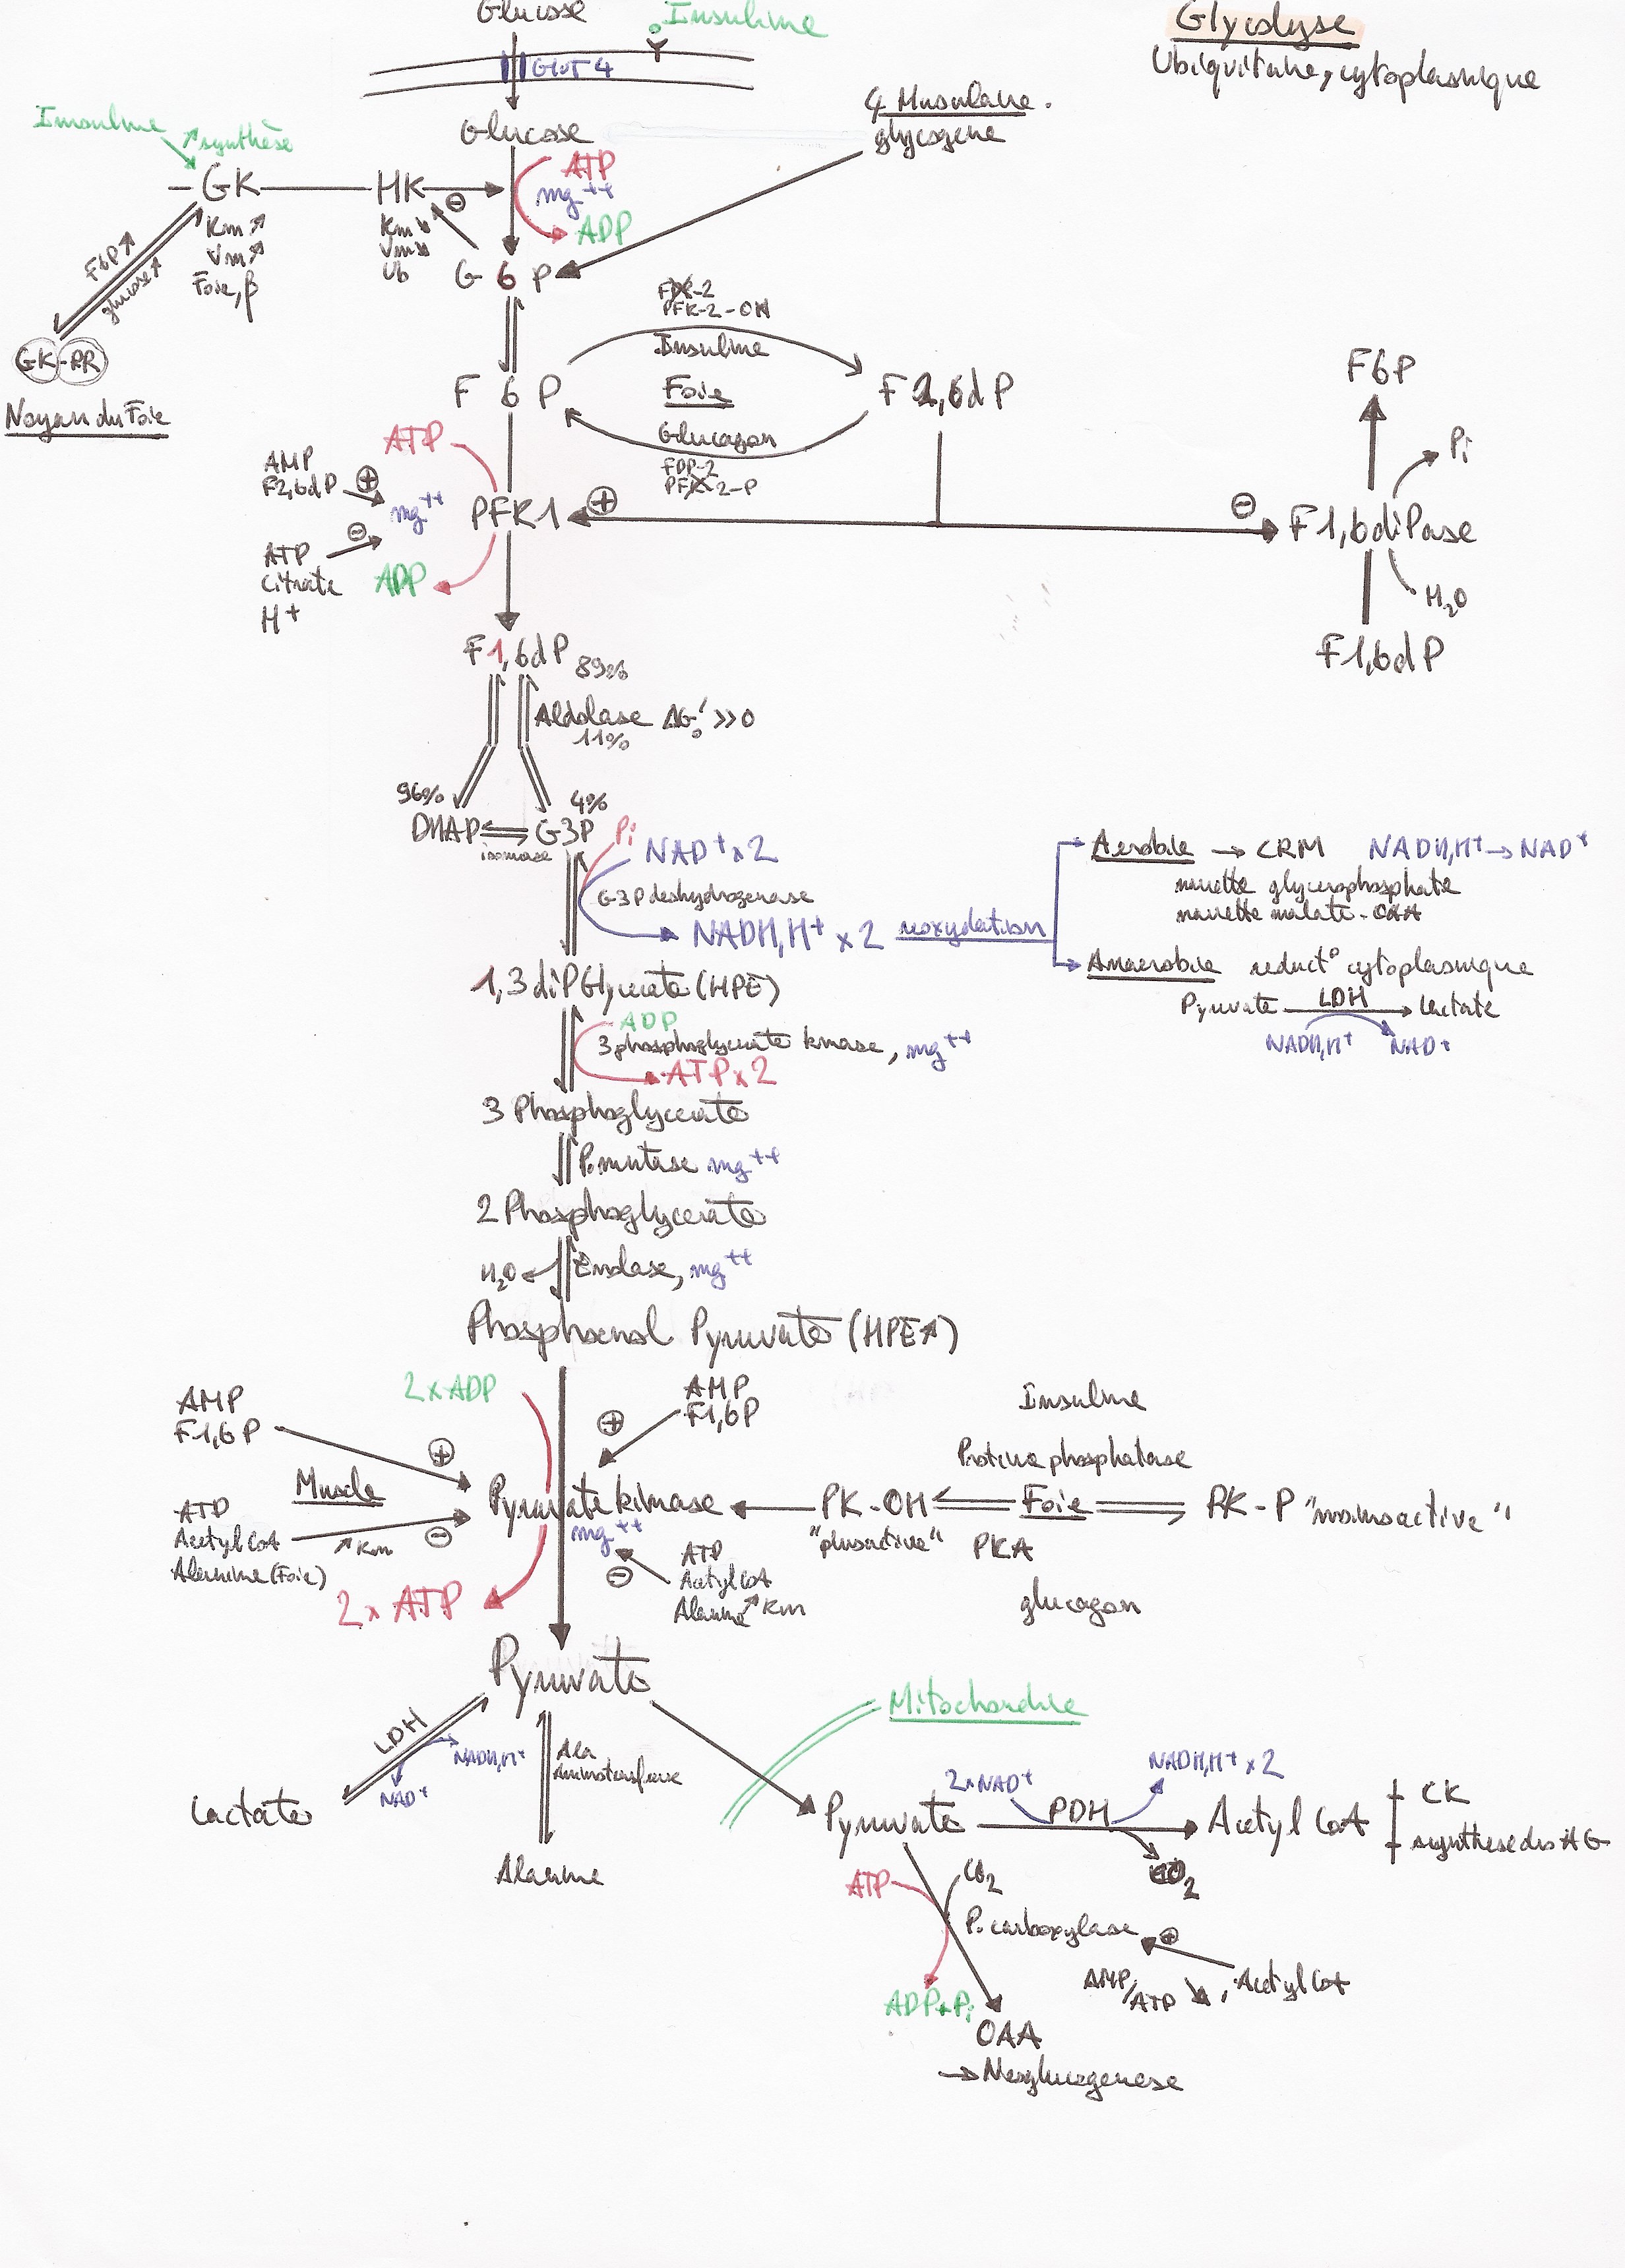 Glycolyse
Ubiquitaire, cytoplasmique
Glucose
Insuline
Glut 4
Glucose
Insuline
↗ synthèse
GK
HK
⊖
ATP
mg++
ADP
Musculaire.
glycogene
Km ↗
Vm ↗
Foie, β
Km ↘
Vm ↘
Ub
G 6 P
F6P ↗
glucose ↗
GK-RR
Noyau du Foie
PFK-2-OH
Insuline
F 6 P
Foie
F 2,6dP
Glucagon
FDP-2
PFK-2-P
F6P
Pi
ATP
AMP
F2,6dP
⊕
mg++
PFK1
⊕
⊖
F1,6diPase
⊖
ATP
Citrate
H+
ADP
H2O
F1,6dP
F1,6dP 89%
Aldolase ΔG°' >>0
11%
96%
4%
DHAP
G3P
isomerase
Pi
NAD+ x2
G3P deshydrogenase
NADH,H+ x 2
reoxydation
Aerobie → CRM NADH,H+ → NAD+
navette glycerophosphate
navette malate-OAA
Anaerobie reduct° cytoplasmique
Pyruvate LDH Lactate
NADH,H+ NAD+
1,3 diPGlycerate (HPE)
ADP
3 phosphoglycerate kinase, mg++
ATP x 2
3 Phosphoglycerate
P. mutase mg++
2 Phosphoglycerate
H2O
Enolase, mg++
Phosphoenol Pyruvate (HPE↗)
2 x ADP
AMP
F1,6P
⊕
AMP
F1,6P
⊕
Muscle
Pyruvate kinase
mg++
ATP
Acetyl CoA
Alanine (Foie)
↗ Km
⊖
2 x ATP
ATP
Acetyl CoA
Alanine ↗ Km
⊖
Insuline
Proteine phosphatase
PK-OH
"plusactive"
Foie
PK-P "moinsactive"
PKA
glucagon
Pyruvate
LDH
NADH,H+
NAD+
Lactate
Ala
Aminotransferase
Alanine
Mitochondrie
Pyruvate
2xNAD+
PDH
NADH,H+ x 2
CO2
Acetyl CoA
CK
synthese des AG
ATP
CO2
P. carboxylase
⊕
AMP/ATP ↘, Acetyl CoA
ADP+Pi
OAA
→ Neoglucogenese